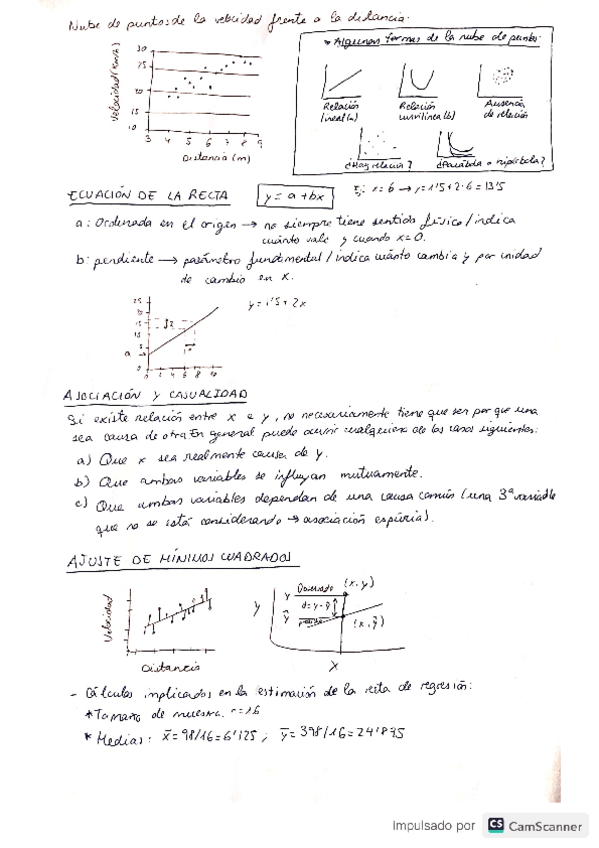 Nube de puntos de la velocidad frente a la distancia.
Velocidad (km/h)
30
25
20
15
10
3 4 5 6 7 8 9
Distancia (m)
→ Algunas formas de la nube de puntos:
Relación lineal (a)
Relación curvilínea (b)
Ausencia de relación
¿Hay relación?
¿Parábola o hipérbola?
ECUACIÓN DE LA RECTA
y = a + bx
Ej: x = 6 → y = 1'5 + 2·6 = 13'5
a: Ordenada en el origen → no siempre tiene sentido físico / indica
cuánto vale y cuando x = 0.
b: pendiente → parámetro fundimental / indica cuánto cambia y por unidad
de cambio en x.
y = 1'5 + 2x
a
0 2 4 6 8 10
ASOCIACIÓN Y CASUALIDAD
Si existe relación entre x e y, no necesariamente tiene que ser por que una
sea causa de otra. En general puede ocurrir cualquiera de los casos siguientes:
a) Que x sea realmente causa de y.
b) Que ambas variables se influyan mutuamente.
c) Que ambas variables dependan de una causa común (una 3ª variable
que no se está considerando → asociación espúria).
AJUSTE DE MÍNIMOS CUADRADOS
Velocidad
Distancia
y
Observado
(x, y)
d = y - ŷ
ŷ
(x, ŷ)
Y
X
- Cálculos implicados en la estimación de la recta de regresión:
* Tamaño de muestra: n = 16
* Medias: x̄ = 98/16 = 6'125 ; ȳ = 398/16 = 24'875
Impulsado por CS CamScanner